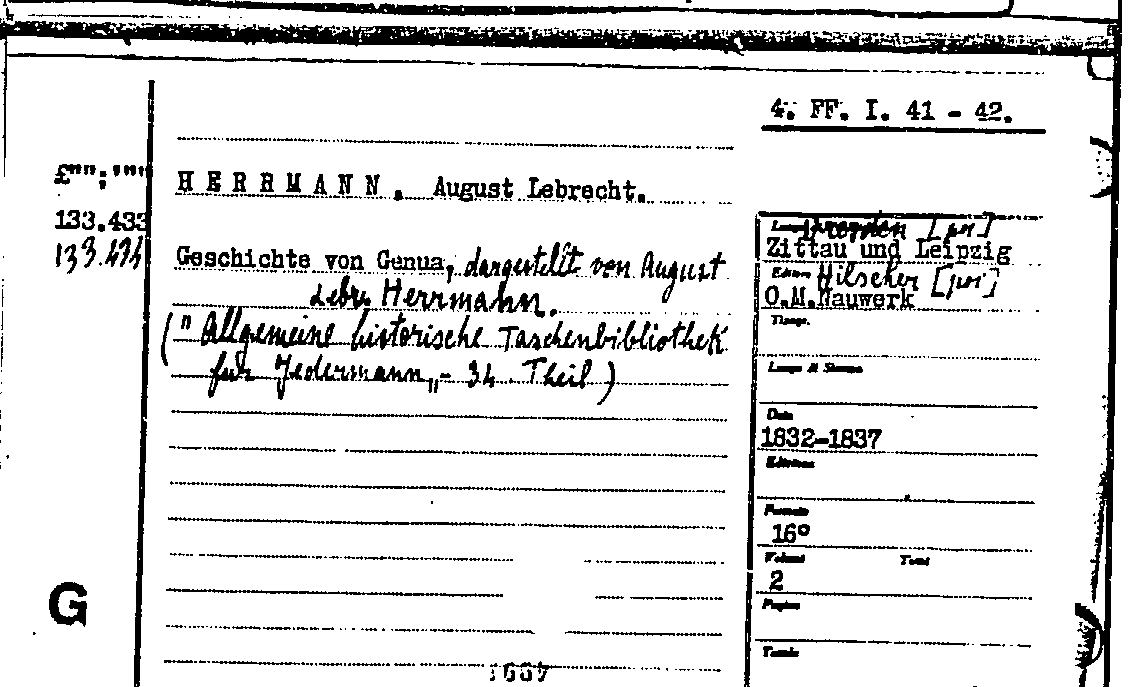 4. FF. I. 41 - 42.
HERRMANN. August Lebrecht.
133.433
133.434
Geschichte von Genua, dargestellt von August
Lebr. Herrmann.
("Allgemeine historische Taschenbibliothek
für Jedermann„- 34. Theil)
Dresden [poi]
Zittau und Leipzig
Editore Hilscher [poi]
O.M.Nauwerk
Tipogr.
Luogo di Stampa
Data
1832-1837
Edizione
Formato
16°
Volumi
2
Pagine
Tavole
G